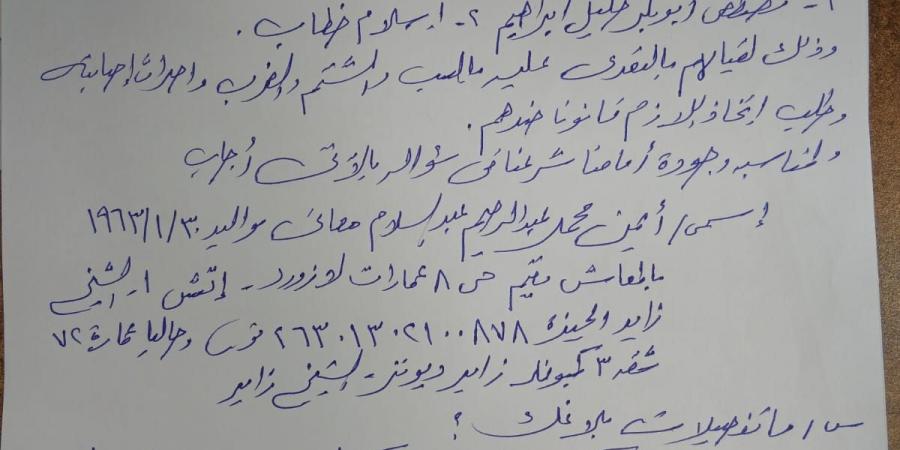 ١- مصطفى أبوبكر خليل ابراهيم ٢- اسلام خطاب .
وذلك لقيامهم بالتعدى عليه بالسب والشتم والضرب واحداث إصابته
وطلب اتخاذ اللازم قانونا ضدهم .
ولمناسبة وجوده أمامنا شرعنا فى سؤاله بالآتى أجاب
إسمى / أيمن محمد عبدالرحيم عبدالسلام مواليد ١٩٦٣/١/٣٠
بالمعاش مقيم ٨ عمارات لازورد - الشيخ
زايد الجيزة ٢٦٣٠١٣٠٢١٠٠٨٧٨ وحاليا عمارة ٧٢
شقه ٣ كمبوند زايد ديونز - الشيخ زايد
س / ما تفصيلات بلاغك ؟